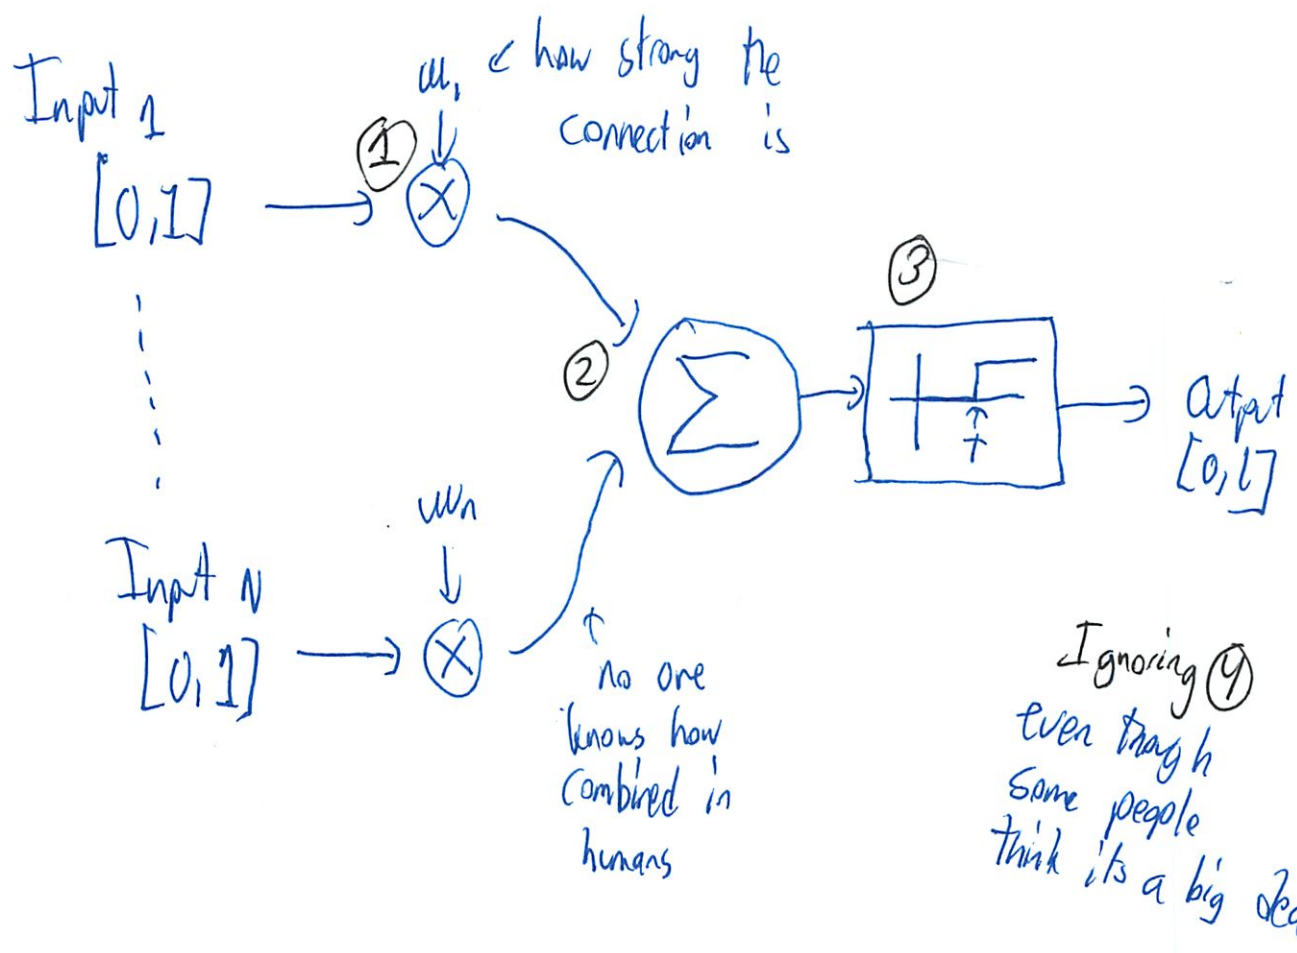 Input 1
[0,1]
w1
< how strong the
connection is
1
X
2
Σ
3
T
Output
[0,1]
wn
Input N
[0,1]
X
no one
knows how
combined in
humans
Ignoring 4
even though
some people
think its a big